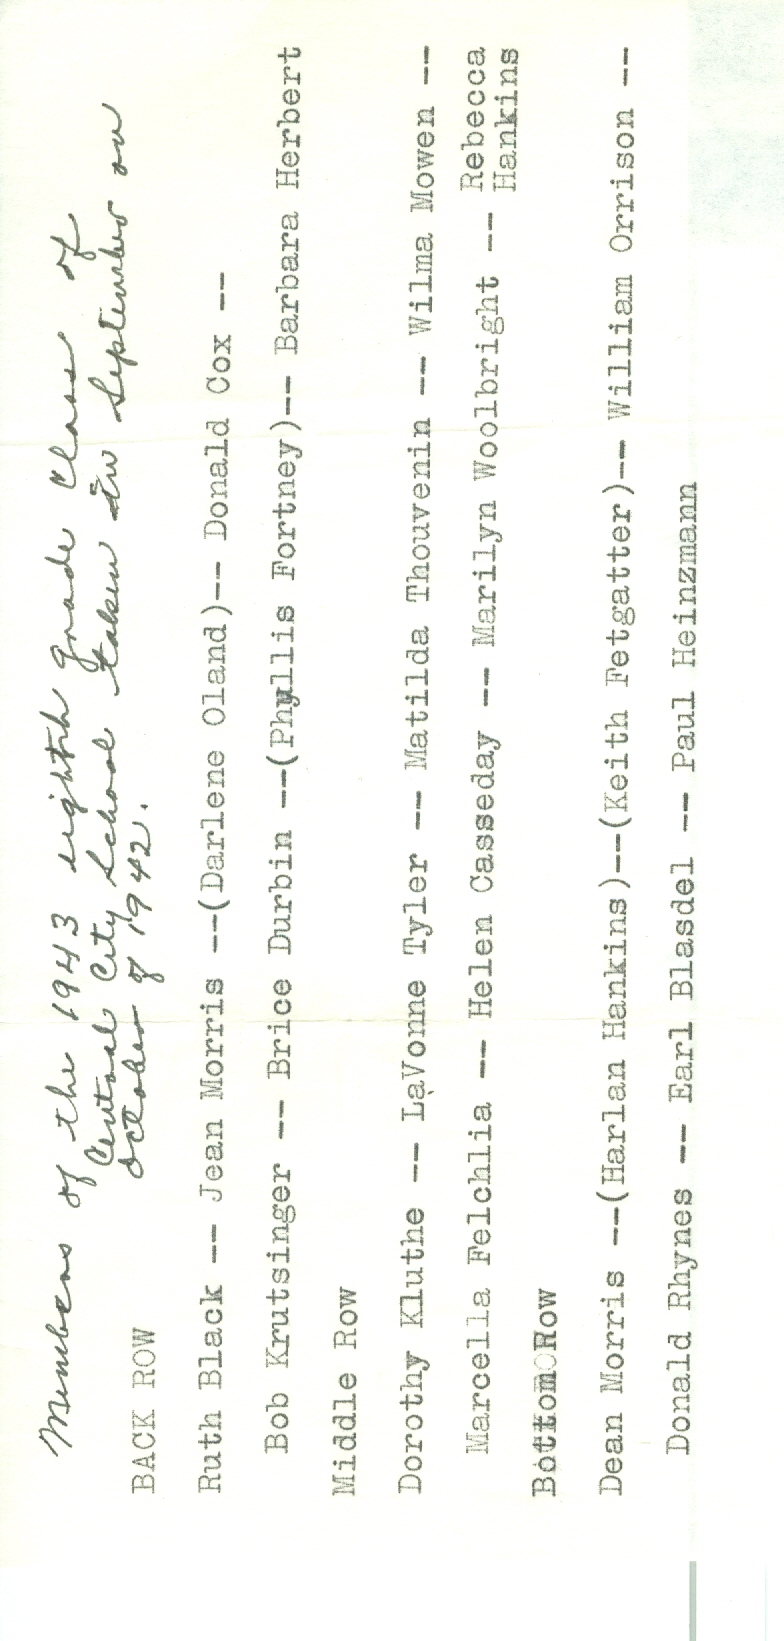 Members of the 1943 eighth grade Class of
Central City School taken in September or
October of 1942.
BACK ROW
Ruth Black -- Jean Morris --(Darlene Oland)-- Donald Cox --
Bob Krutsinger -- Brice Durbin --(Phyllis Fortney)-- Barbara Herbert
Middle Row
Dorothy Kluthe -- LaVonne Tyler -- Matilda Thouvenin -- Wilma Mowen --
Marcella Felchlia -- Helen Casseday -- Marilyn Woolbright -- Rebecca
Hankins
Bottom Row
Dean Morris --(Harlan Hankins)--(Keith Fetgatter)-- William Orrison --
Donald Rhynes -- Earl Blasdel -- Paul Heinzmann